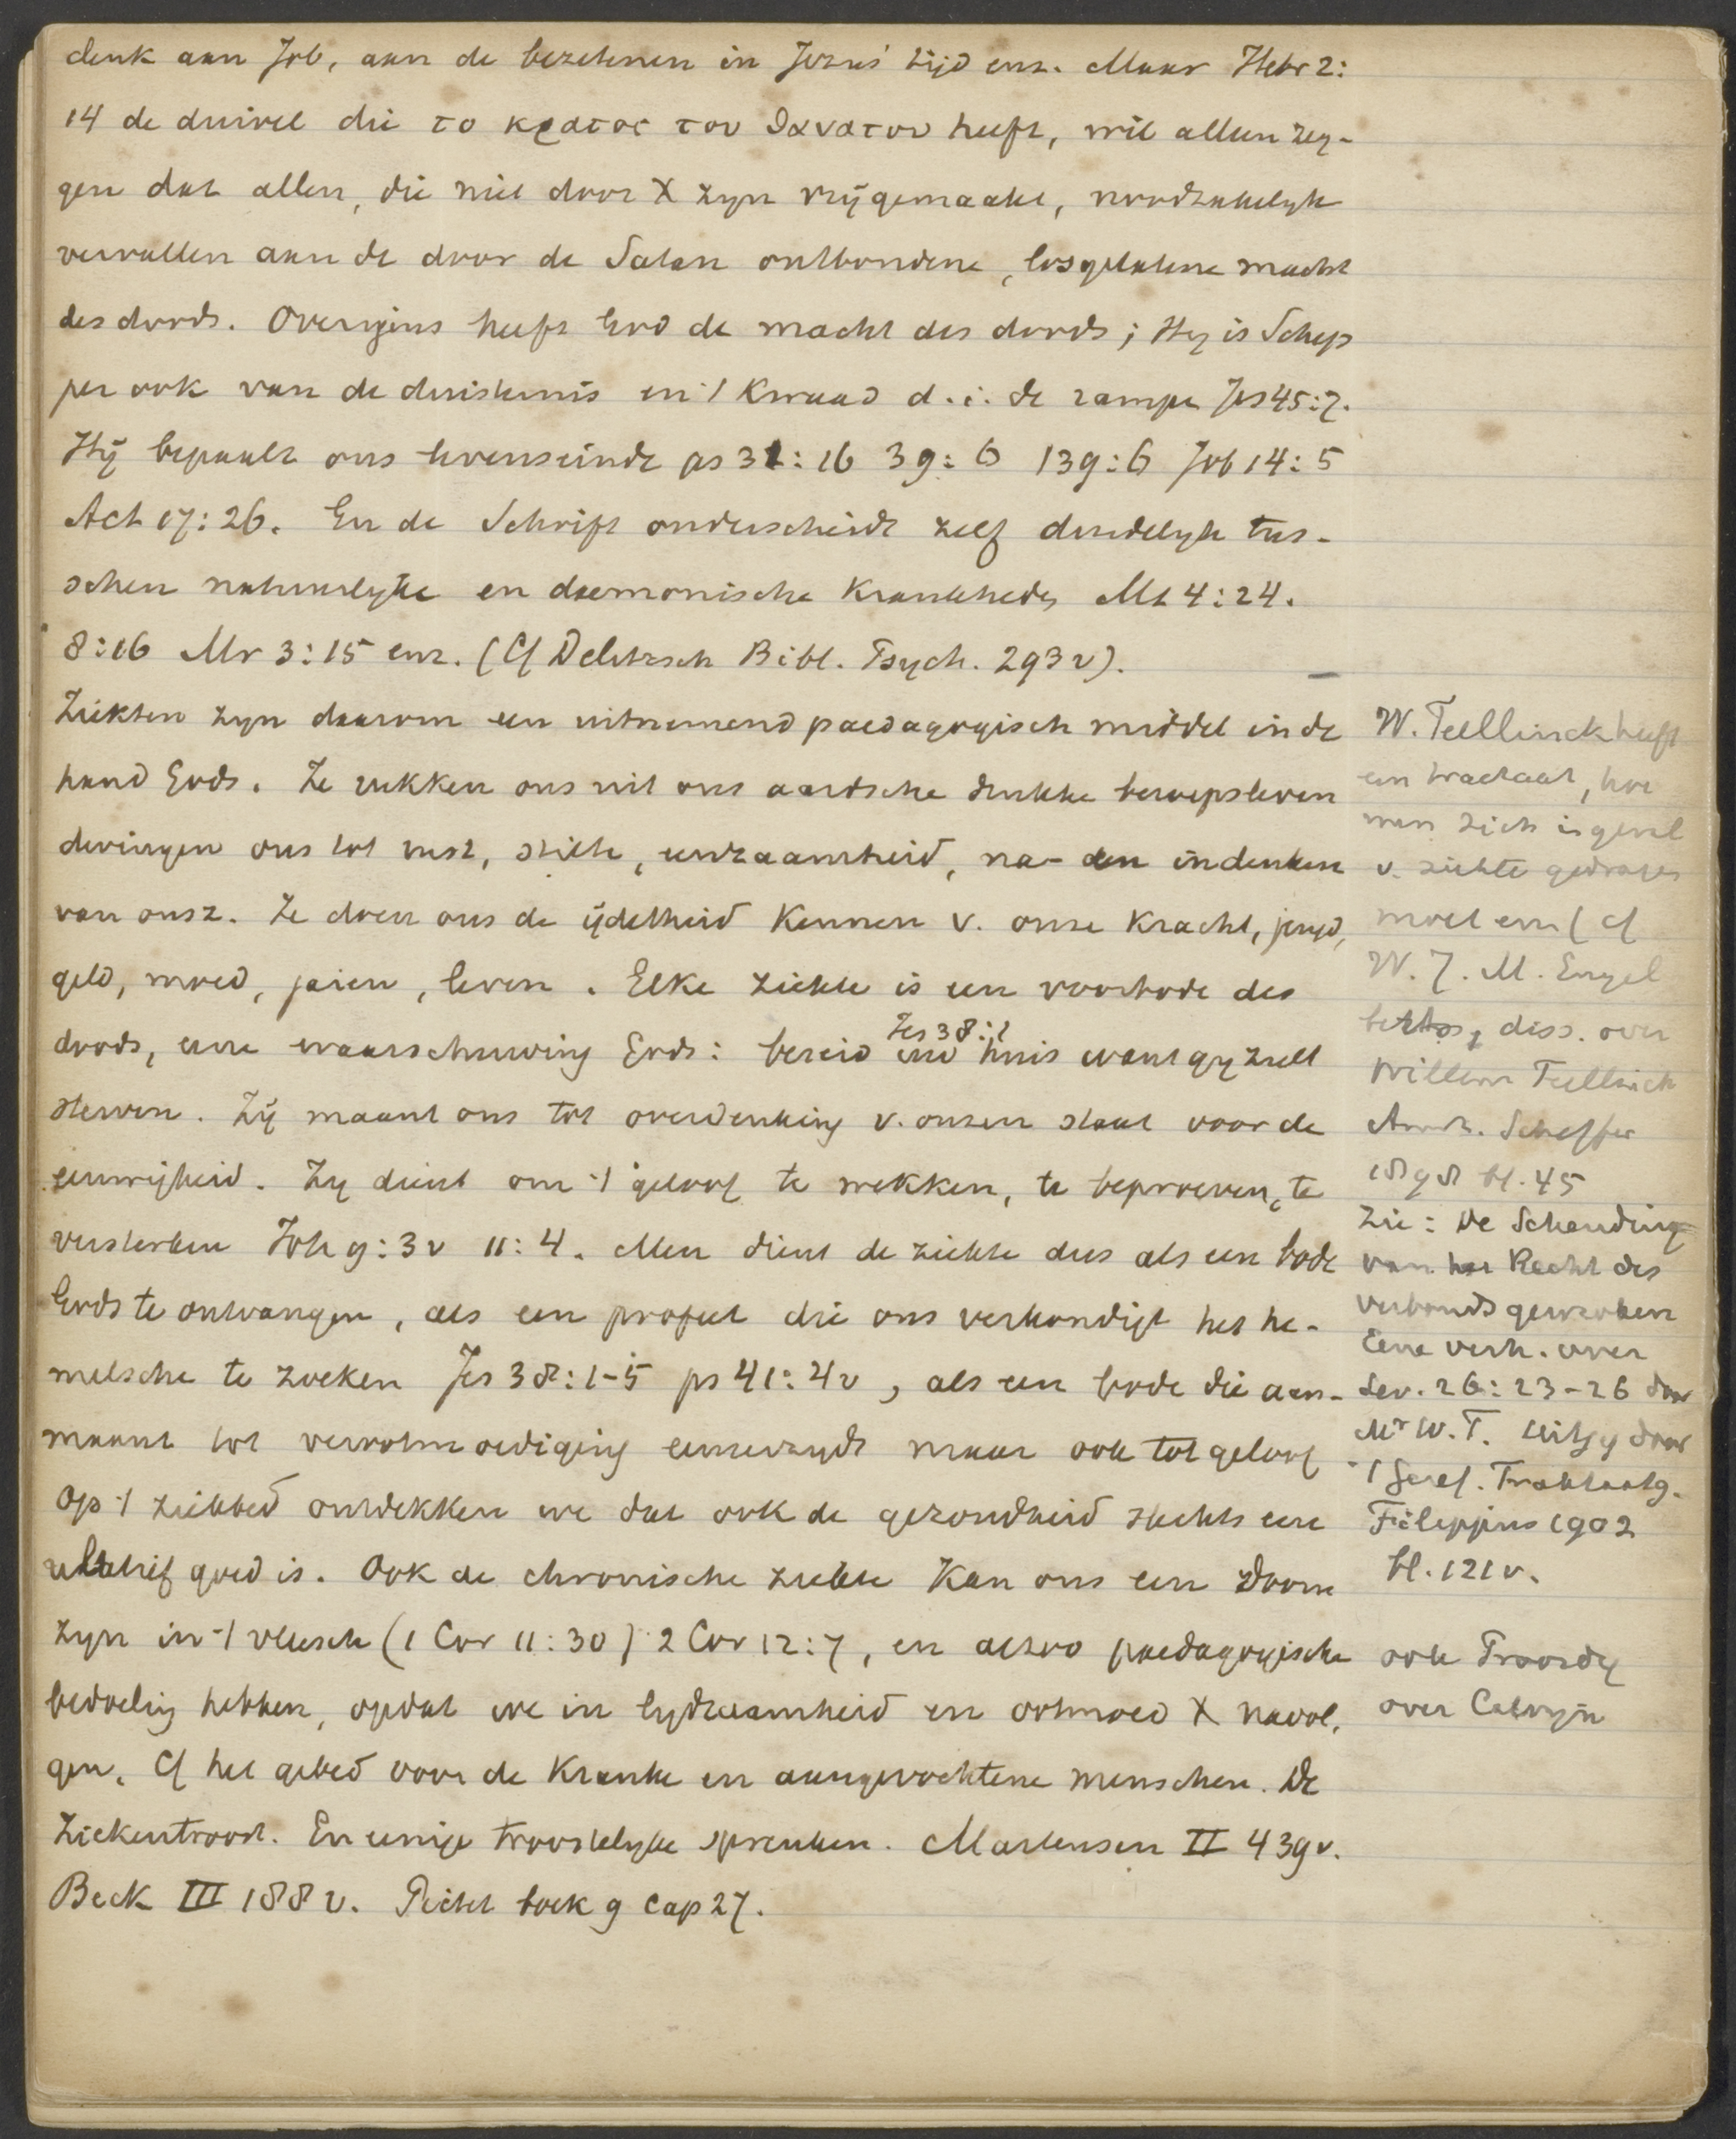 denk aan Job, aan de bezetenen in Jezus' tijd enz. Maar Hebr 2:
14 de duivel die το κρατος του θανατου heeft, wil alleen zeg-
gen dat allen, die niet door X zyn vrijgemaakt, noodzakelyk
vervallen aan de door de Satan ontbondene, losgelatene macht
des doods. Overigens heeft God de macht des doods; Hy is Schep
per ook van de duisternis en 't Kwaad d.i. de rampe Jes 45:7.
Hij bepaalt ons levenseinde ps 31:16 39:6 139:6 Job 14:5
Act 17:26. En de Schrift onderscheidt zelf duidelyk tus-
schen natuurlyke en daemonische Krankhedn Mt 4:24.
8:16 Mr 3:15 enz. (Cf Delitzsch Bibl. Psych. 293v).
Ziekten zyn daarom een uitnemend paedagogisch middel in de
hand Gods. Ze rukken ons uit ons aardsche drukke beroepsleven
dwingen ons tot rust, stilte, eenzaamheid, na- en indenken
van onsz. Ze doen ons de ijdelheid Kennen v. onze Kracht, jeugd,
geld, moed, jaren, leven. Elke ziekte is een voorbode des
doods, eene waarschuwing Gods: bereid uw huis want gy zult
Jes 38:1
sterven. Zij maant ons tot overdenking v. onzen staat voor de
eeuwigheid. Zy dient om 't geloof te wekken, te beproeven, te
versterken Joh 9:3v 11:4. Men dient de ziekte dus als een bode
Gods te ontvangen, als een profeet die ons verkondigt het he-
melsche te zoeken Jes 38:1-5 ps 41:4v, als een bode die aan-
maant tot verootmoediging eenerzyds maar ook tot geloof
Op 't ziekbed ontdekken we dat ook de gezondheid slechts een
relatief goed is. Ook de chronische ziekte Kan ons een doorn
zyn in 't vleesch (1 Cor 11:30) 2 Cor 12:7, en alzoo paedagogische
bedoeling hebben, opdat we in lydzaamheid en ootmoed X navol.
gen. Cf het gebed voor de Kranke en aangevochtene menschen. De
Ziekentroost. En eenige troostelyke spreuken. Martensen II 439v.
Beck III 188v. Pictet boek 9 cap 27.
W. Teellinck heeft
een tractaat, hoe
men zich in geval
v. ziekte gedragen
moet enz (cf
W. J. M. Engel
berts, diss. over
Willem Teellinck
Amst. Scheffer
1898 bl. 45
Zie: De Schending
van het Recht des
Verbonds gewroken
Eene verh. over
Lev. 26:23-26 door
Mr W. T. uitg door
't Geref. Traktaatg.
Filippus 1902
bl. 121v.
ook
over Calvyn